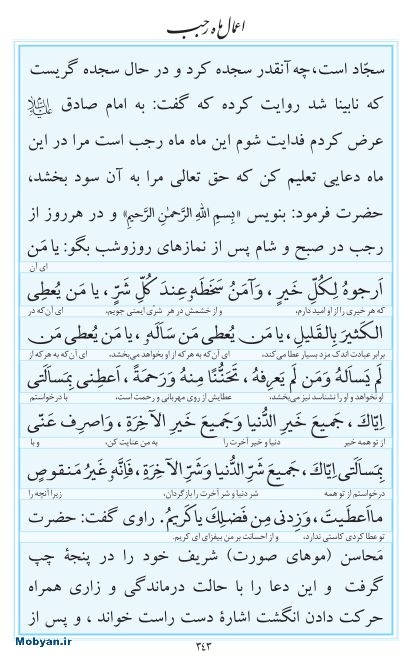 اعمال ماه رجب
سجّاد است، چه آنقدر سجده کرد و در حال سجده گریست
که نابینا شد روایت کرده که گفت: به امام صادق علیه‌السلام
عرض کردم فدایت شوم این ماه ماه رجب است مرا در این
ماه دعایی تعلیم کن که حق تعالی مرا به آن سود بخشد،
حضرت فرمود: بنویس «بِسمِ اللهِ الرَّحمٰنِ الرَّحیمِ» و در هرروز از
رجب در صبح و شام پس از نمازهای روزوشب بگو: یا مَن
ای آن
اَرجوهُ لِکُلِّ خَیرٍ، وَآمَنُ سَخَطَهو عِندَ کُلِّ شَرٍّ، یا مَن یُعطِی
که هر خیری را از او امید دارم، و از خشمش در هر شری ایمنی جویم. ای آن‌که در
الکَثیرَ بِالقَلیلِ، یا مَن یُعطی مَن سَاَلَهو، یا مَن یُعطی مَن
برابر عبادت اندک مزد بسیار عطا می‌کند، ای آن‌که به هر که از او بخواهد می‌بخشد، ای آن‌که به هر که از
لَم یَسأَلهُ وَمَن لَم یَعرِفهُ، تَحَنُّنًا مِنهُ وَرَحمَةً، اَعطِنی بِمَسأَلَتی
او نخواهد و او را نشناسد نیز می‌بخشد، عطایش از روی مهربانی و رحمت است، با درخواستم
اِیّاکَ، جَمیعَ خَیرِ الدُّنیا وَجَمیعَ خَیرِ الآخِرَةِ، وَاصرِف عَنّی
از تو همه خیر دنیا و خیر آخرت را به من عنایت کن، و با
بِمَسأَلَتی اِیّاکَ، جَمیعَ شَرِّ الدُّنیا وَشَرِّ الآخِرَةِ، فَاِنَّهو غَیرُ مَنقوصٍ
درخواستم از تو همه شر دنیا و شر آخرت را بازگردان، زیرا آنچه را
ما اَعطَیتَ، وَزِدنی مِن فَضلِکَ یا کَریمُ. راوی گفت: حضرت
تو عطا کردی کاستی ندارد، و از احسانت بر من بیفزای ای کریم.
مَحاسن (موهای صورت) شریف خود را در پنجهٔ چپ
گرفت و این دعا را با حالت درماندگی و زاری همراه
حرکت دادن انگشت اشارهٔ دست راست خواند، و پس از
۳۴۳
Mobyan.ir